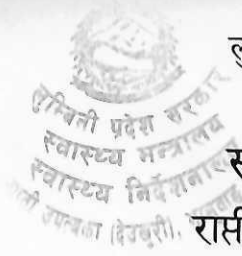 लु
लुम्बिनी प्रदेश सरकार
स्वास्थ्य मन्त्रालय
स्
स्वास्थ्य निर्देशनालय
उपत्यका (देउखुरी),
राप्ती